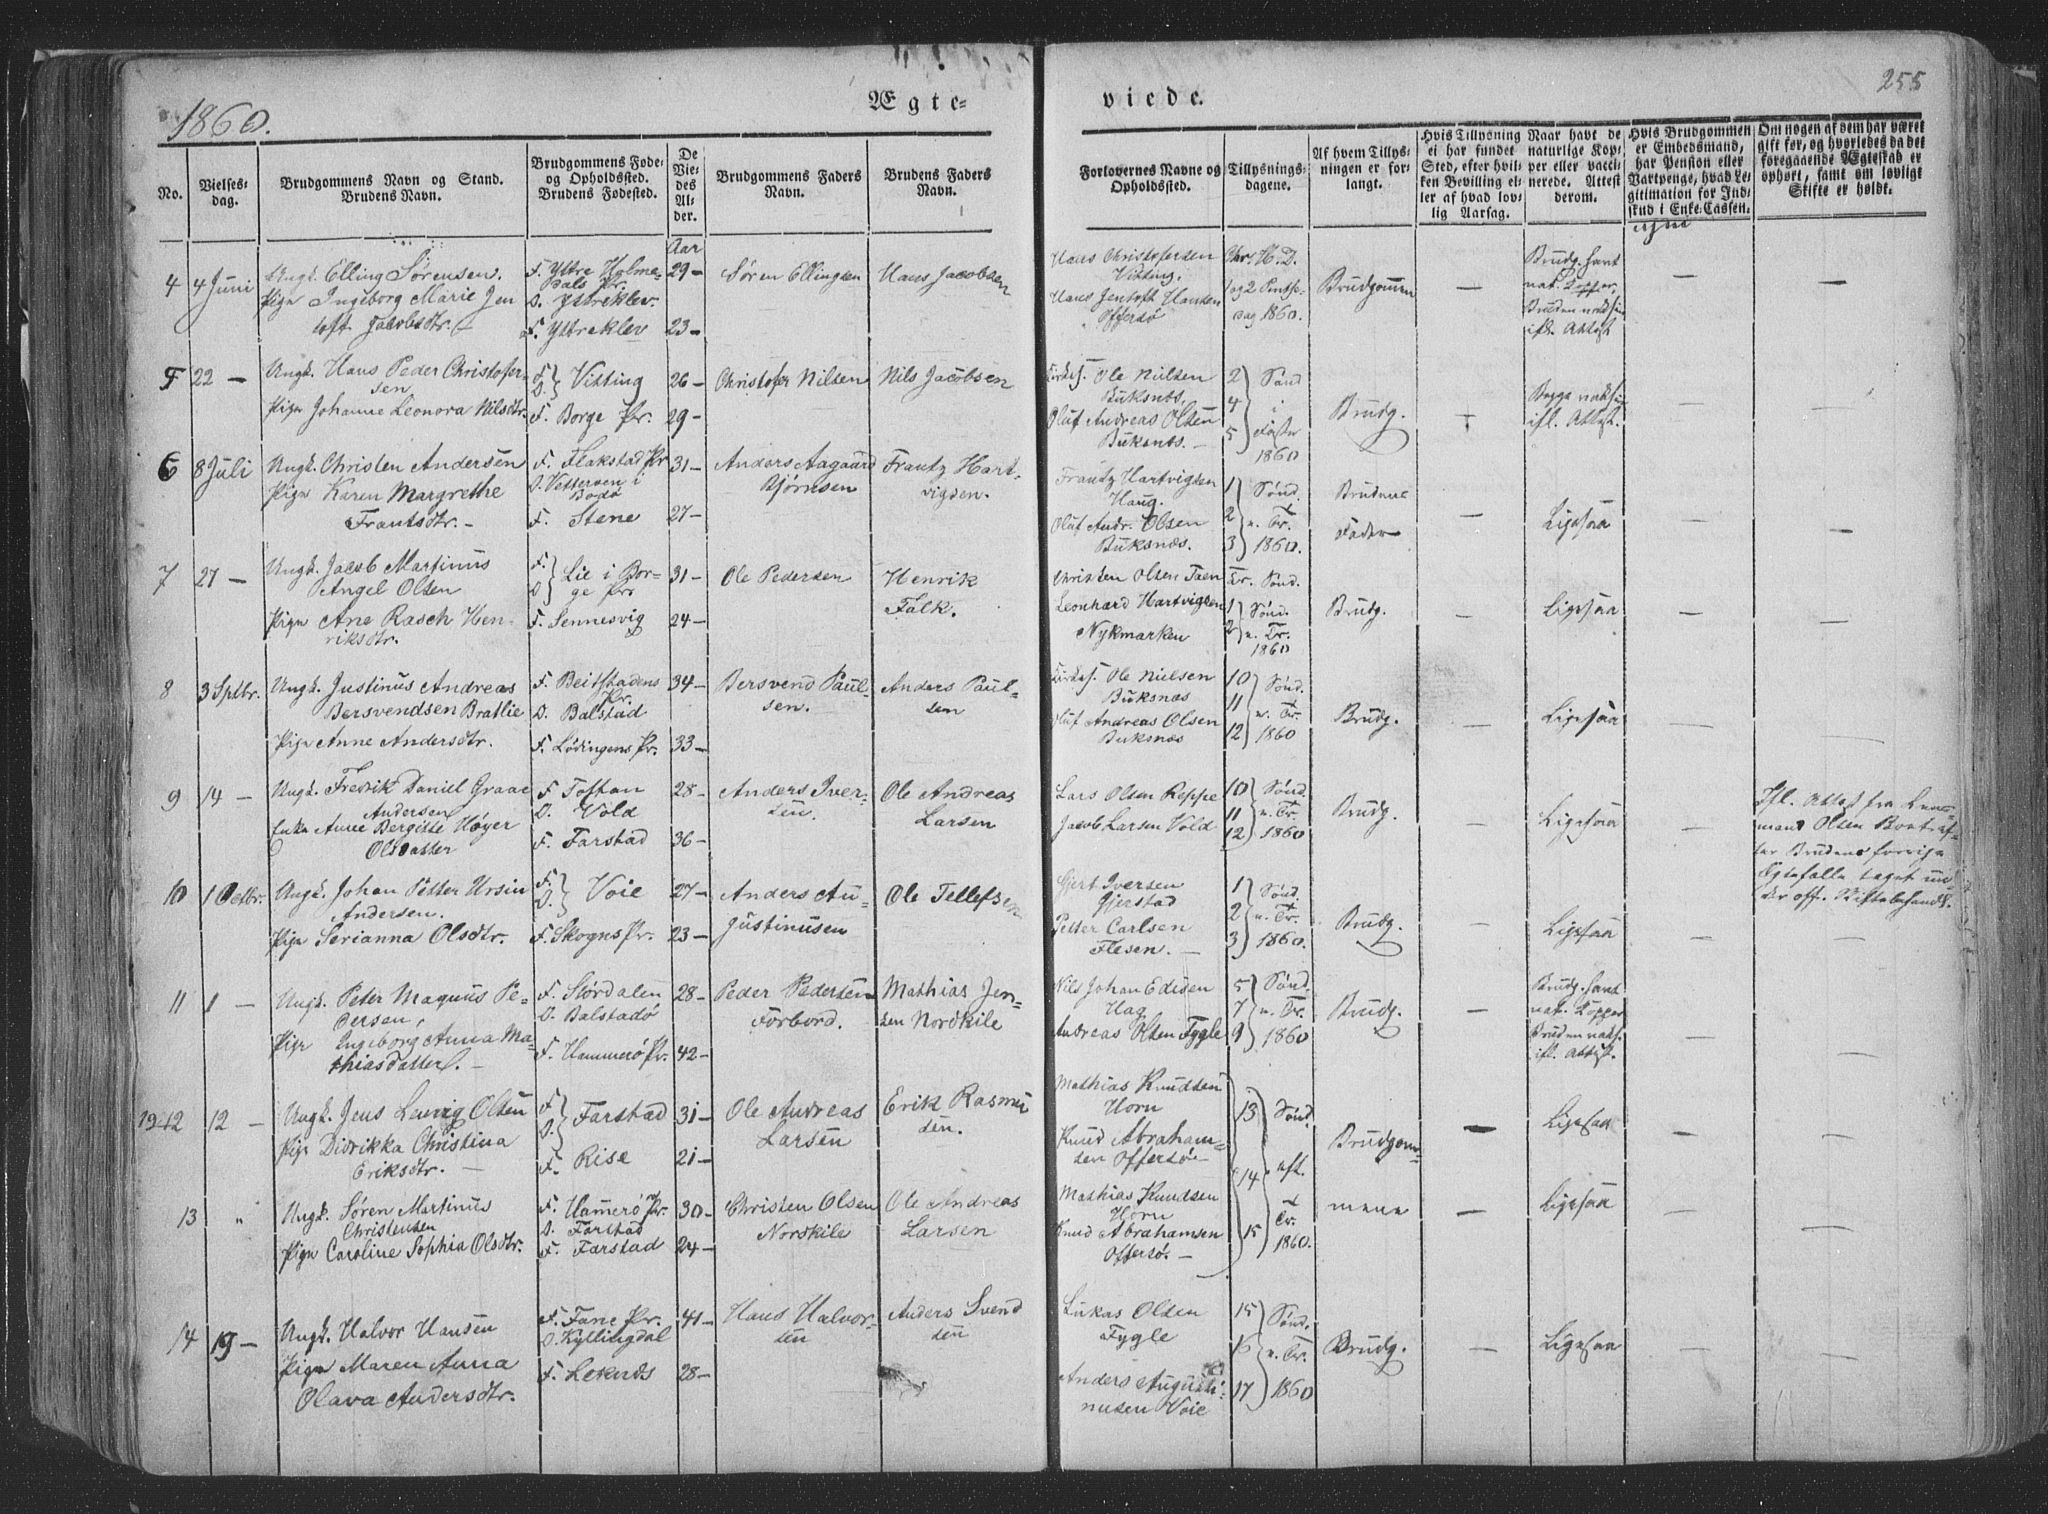 1860.
Ægte=
viede.
255
No.
Vielses=
dag.
Brudgommens Navn og Stand.
Brudens Navn.
Brudgommens Føde=
og Opholdssted.
Brudens Fødested.
De
Vie=
des
Al=
der.
Brudgommens Faders
Navn.
Brudens Faders
Navn.
Forlovernes Navne og
Opholdssted.
Tillysnings=
dagene.
Af hvem Tillys=
ningen er for=
langt.
Hvis Tillysning
ei har fundet
Sted, efter hvil=
ken Bevilling el=
ler af hvad lov=
lig Aarsag.
Naar havt de
naturlige Kop=
per eller vacci=
nerede. Attest
derom.
Hvis Brudgommen
er Embedsmand,
har Pension eller
Vartpenge, hvad Le=
gitimation for Ind=
skud i Enke=Cassen.
Om nogen af dem har været
gift før, og hvorledes da det
foregaaende Ægteskab er
ophørt, samt om lovligt
Skifte er holdt.
Aar
4 4 Juni Ungk. Elling Sørensen.
Pige Ingeborg Marie Jen
toft Jacobsdtr.
F. Ystre Holme
Hals Pr.
O. Ystreklev.
F. Ystreklev
29
23
Søren Ellingsen
Hans Jacobsen
Hans Christofersen
Vitting.
Hans Jentoft Hansen
Offersø
Chr. H. D.
1 og 2 Pintse
dag 1860.
Brudgommen
—
Brudg. havt
nat. Kopper,
Bruden vaksin
ifl. Attest
—
—
5 22 — Ungk. Hans Peder Christofer-
sen
Pige Johanne Leonora Nilsdtr.
F.
O. } Vitting
F. Borge Pr.
26
29
Christofer Nilsen
Nils Jacobsen
Kirkes. Ole Nilsen
Buksnes.
Oluf Andreas Olsen
Buksnes. —
2
4
5
Sønd
i
Faste
1860
Brudg.
Begge vaksin
ifl. Attest.
6 8 Juli Ungk. Christen Andersen
Pige Karen Margrethe
Frantsdtr. —
F. Flakstad Pr
O. Vetterven i
Bodø
F. Stene
31
27
Anders Aagaard
Bjørnsen
Frantz Hart-
vigsen.
Frantz Hartvigsen
Haug.
Oluf Andr. Olsen
Buksnæs.
1
2
3
Sønd.
e. Tr.
1860.
Brudens
Fader
—
Ligesaa
—
—
7 27 — Ungk. Jacob Martinus
Angel Olsen
Pige Ane Rasch Hen-
riksdtr.
F.
O. } Lie i Bor-
ge Pr.
F. Sennesvig
31
24
Ole Pedersen
Henrik
Falk.
Christen Olsen Taen
Leonhard Hartvigsen
Nykmarken
Tr. Sønd.
1
2
Sønd.
e. Tr.
1860
Brudg.
—
Ligesaa
—
—
8 3 Sptbr. Ungk. Justinus Andreas
Bersvendsen Bratlie
Pige Anne Andersdtr.
F. Beitstadens
Pr.
O. Balstad
F. Lødingens Pr.
34
33
Bersvend Paul-
sen.
Anders Paul-
sen
Kirkes. Ole Nielsen
Buksnæs
Oluf Andreas Olsen
Buksnæs
10
11
12
Sønd.
e. Tr.
1860
Brudg.
—
Ligesaa
—
—
9 14 — Ungk. Fredrik Daniel Graae
Andersen
Enke Anne Bergitte Høyer
Olsdatter
F. Toftan
O. Vold
F. Farstad
28
36
Anders Iver-
sen.
Ole Andreas
Larsen
Lars Olsen Reppe
Jacob Larsen Vold
10
11
12
Sønd.
e. Tr.
1860
Brudg.
—
Ligesaa
—
Ifl. Attest fra Lens-
mand Olsen
Brudens forrige
taget un-
der off. Skiftebehandl.
10 1 Octbr. Ungk. Johan Petter Ursin
Andersen.
Pige Serianna Olsdtr.
F.
O. } Voie
F. Skogns Pr.
27
23
Anders Au-
gustinusen
Ole Tellefsen
Gjert Iversen
Gjerstad
Petter Carlsen
Flesen. —
1
2
3
Sønd.
e. Tr.
1860.
Brudg.
—
Ligesaa
—
—
11 1 — Ungk. Peter Magnus Pe-
dersen,
Pige Ingeborg Anna Ma-
thiasdatter. —
F. Størdalen
O. Balstad
F. Hammerø Pr.
28
42
Peder Pedersen
Forbord.
Mathias Jen-
sen Nordkile
Nils Johan Edisen
Hag
Andreas Olsen Fygle
5
7
9
Sønd.
e. Tr.
1860
Brudg.
—
Brudg. havt
nat. Kopper
Bruden vaks.
ifl. Attest.
—
—
12 12 — Ungk. Jens Lenvig Olsen
Pige Didrikka Christina
Eriksdtr. —
F.
O. } Farstad
F. Rise
31
21
Ole Andreas
Larsen
Erik Rasmu
sen.
Mathias Knudsen
Horn
Knud Abraham-
sen Offersø
13
14
15
Sønd.
eft.
Tr.
1860.
Brudgom-
mene
—
Ligesaa
—
—
13 " Ungk. Søren Martinus
Christensen
Pige Caroline Sophia Olsdtr.
F. Hamerø Pr.
O. Farstad
F. Farstad
30
24
Christen Olsen
Norskile
Ole Andreas
Larsen
Mathias Knudsen
Horn
Knud Abrahamsen
Offersø. —
—
Ligesaa
—
—
14 19 — Ungk. Halvor Hansen
Pige Maren Anna
Olava Andersdtr.
F. Fane Pr.
O. Kyllingdal
F. Leknes
41
28
Hans Halvor-
sen
Anders Svend
sen
Lukas Olsen
Fygle
Anders Augusti-
nusen Voie
15
16
17
Sønd.
e. Tr.
1860
Brudg.
—
Ligesaa
—
—